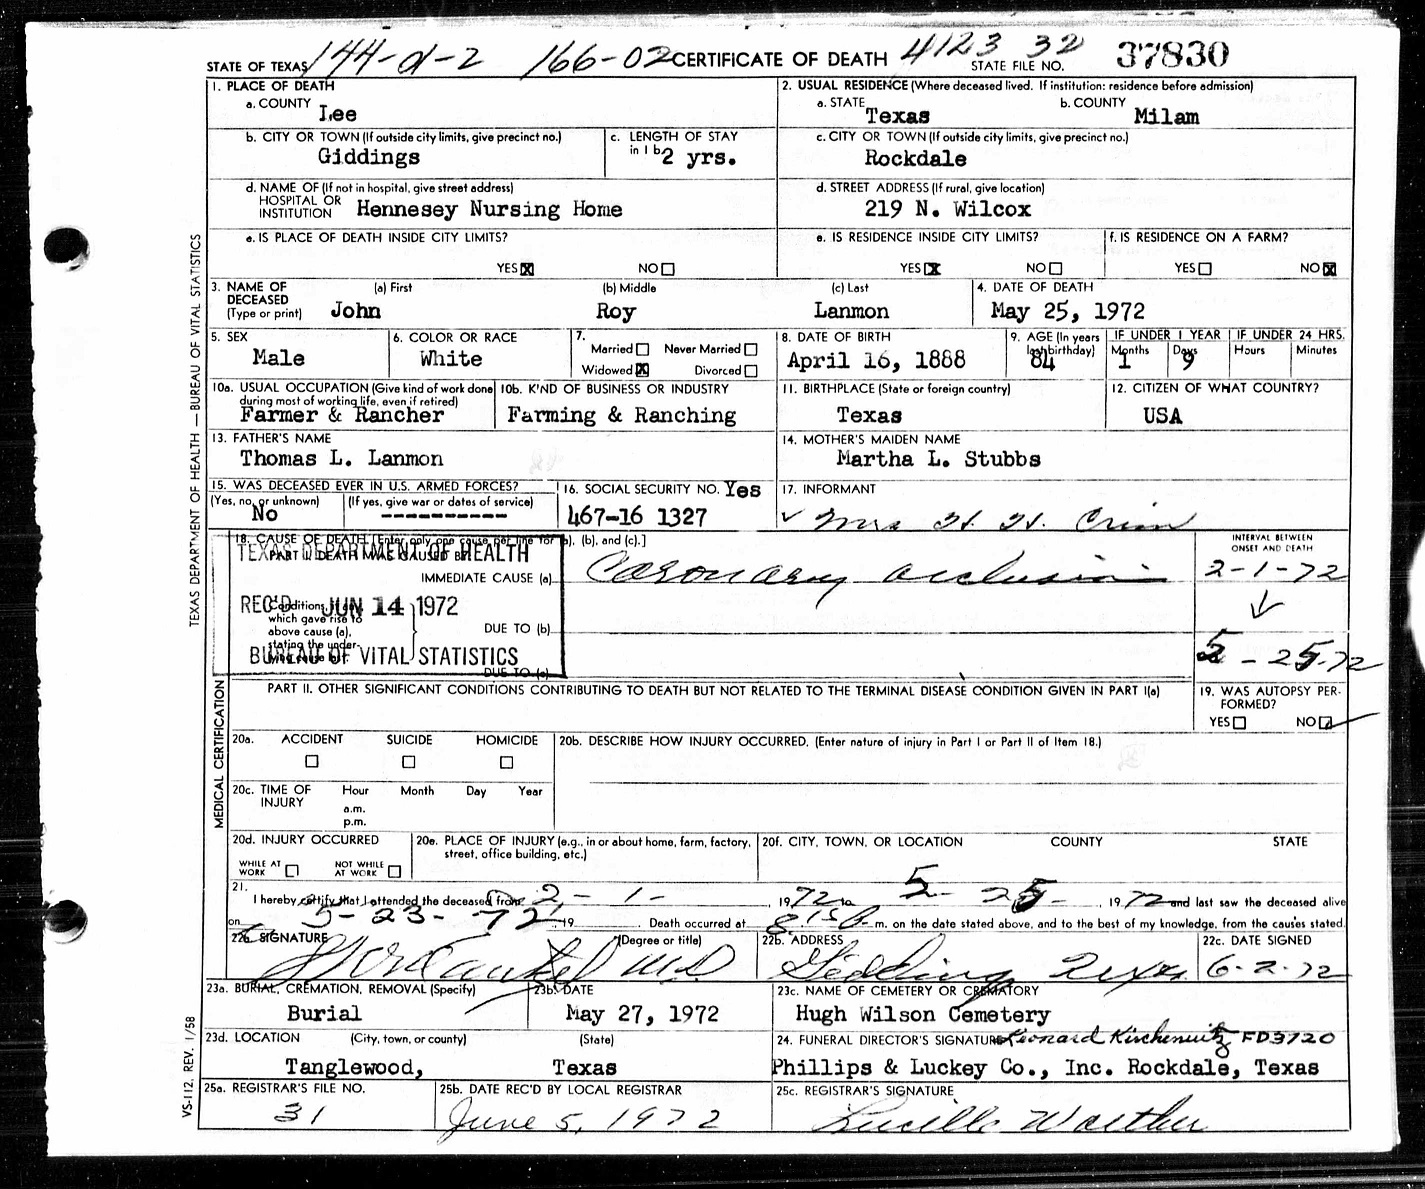 144-d-2 166-02 CERTIFICATE OF DEATH 4123 32 37830
STATE OF TEXAS STATE FILE NO.
1. PLACE OF DEATH
a. COUNTY Lee
2. USUAL RESIDENCE (Where deceased lived. If institution: residence before admission)
a. STATE Texas b. COUNTY Milam
b. CITY OR TOWN (If outside city limits, give precinct no.) Giddings
c. LENGTH OF STAY in 1 b 2 yrs.
c. CITY OR TOWN (If outside city limits, give precinct no.) Rockdale
d. NAME OF (If not in hospital, give street address) HOSPITAL OR INSTITUTION Hennesey Nursing Home
d. STREET ADDRESS (If rural, give location) 219 N. Wilcox
e. IS PLACE OF DEATH INSIDE CITY LIMITS? YES ☒ NO ☐
e. IS RESIDENCE INSIDE CITY LIMITS? YES ☒ NO ☐
f. IS RESIDENCE ON A FARM? YES ☐ NO ☒
3. NAME OF DECEASED (Type or print) (a) First John (b) Middle Roy (c) Last Lanmon
4. DATE OF DEATH May 25, 1972
5. SEX Male
6. COLOR OR RACE White
7. Married ☐ Never Married ☐ Widowed ☒ Divorced ☐
8. DATE OF BIRTH April 16, 1888
9. AGE (In years last birthday) 84
IF UNDER 1 YEAR Months 1 Days 9
IF UNDER 24 HRS. Hours Minutes
10a. USUAL OCCUPATION (Give kind of work done during most of working life, even if retired) Farmer & Rancher
10b. KIND OF BUSINESS OR INDUSTRY Farming & Ranching
11. BIRTHPLACE (State or foreign country) Texas
12. CITIZEN OF WHAT COUNTRY? USA
13. FATHER'S NAME Thomas L. Lanmon
14. MOTHER'S MAIDEN NAME Martha L. Stubbs
15. WAS DECEASED EVER IN U.S. ARMED FORCES?
(Yes, no, or unknown) No (If yes, give war or dates of service) ----------
16. SOCIAL SECURITY NO. Yes 467-16 1327
17. INFORMANT Mrs H. H. Crim
18. CAUSE OF DEATH [Enter only one cause per line for (a), (b), and (c).]
PART I. DEATH WAS CAUSED BY:
TEXAS DEPARTMENT OF HEALTH
REC'D JUN 14 1972
BUREAU OF VITAL STATISTICS
IMMEDIATE CAUSE (a) Coronary occlusion
Conditions, which gave rise to above cause (a), stating the under-
DUE TO (b)
DUE TO (c)
INTERVAL BETWEEN ONSET AND DEATH
2-1-72
5-25-72
PART II. OTHER SIGNIFICANT CONDITIONS CONTRIBUTING TO DEATH BUT NOT RELATED TO THE TERMINAL DISEASE CONDITION GIVEN IN PART I(a)
19. WAS AUTOPSY PERFORMED? YES ☐ NO ☑
20a. ACCIDENT ☐ SUICIDE ☐ HOMICIDE ☐
20b. DESCRIBE HOW INJURY OCCURRED. (Enter nature of injury in Part I or Part II of Item 18.)
20c. TIME OF INJURY Hour a.m. p.m. Month Day Year
20d. INJURY OCCURRED WHILE AT WORK ☐ NOT WHILE AT WORK ☐
20e. PLACE OF INJURY (e.g., in or about home, farm, factory, street, office building, etc.)
20f. CITY, TOWN, OR LOCATION COUNTY STATE
21. I hereby certify that I attended the deceased from 2-1-, 1972 5-25-, 1972 and last saw the deceased alive
on 5-23-72, 19 . Death occurred at 8:15 P. m. on the date stated above, and to the best of my knowledge, from the causes stated.
22a. SIGNATURE (Degree or title) MD
22b. ADDRESS Giddings Texas
22c. DATE SIGNED 6-2-72
23a. BURIAL, CREMATION, REMOVAL (Specify) Burial
23b. DATE May 27, 1972
23c. NAME OF CEMETERY OR CREMATORY Hugh Wilson Cemetery
23d. LOCATION (City, town, or county) (State) Tanglewood, Texas
24. FUNERAL DIRECTOR'S SIGNATURE Leonard Kirchenwitz FD3720
Phillips & Luckey Co., Inc. Rockdale, Texas
25a. REGISTRAR'S FILE NO. 31
25b. DATE REC'D BY LOCAL REGISTRAR June 5, 1972
25c. REGISTRAR'S SIGNATURE Lucille Walther
TEXAS DEPARTMENT OF HEALTH—BUREAU OF VITAL STATISTICS
MEDICAL CERTIFICATION
VS-112. REV. 1/58